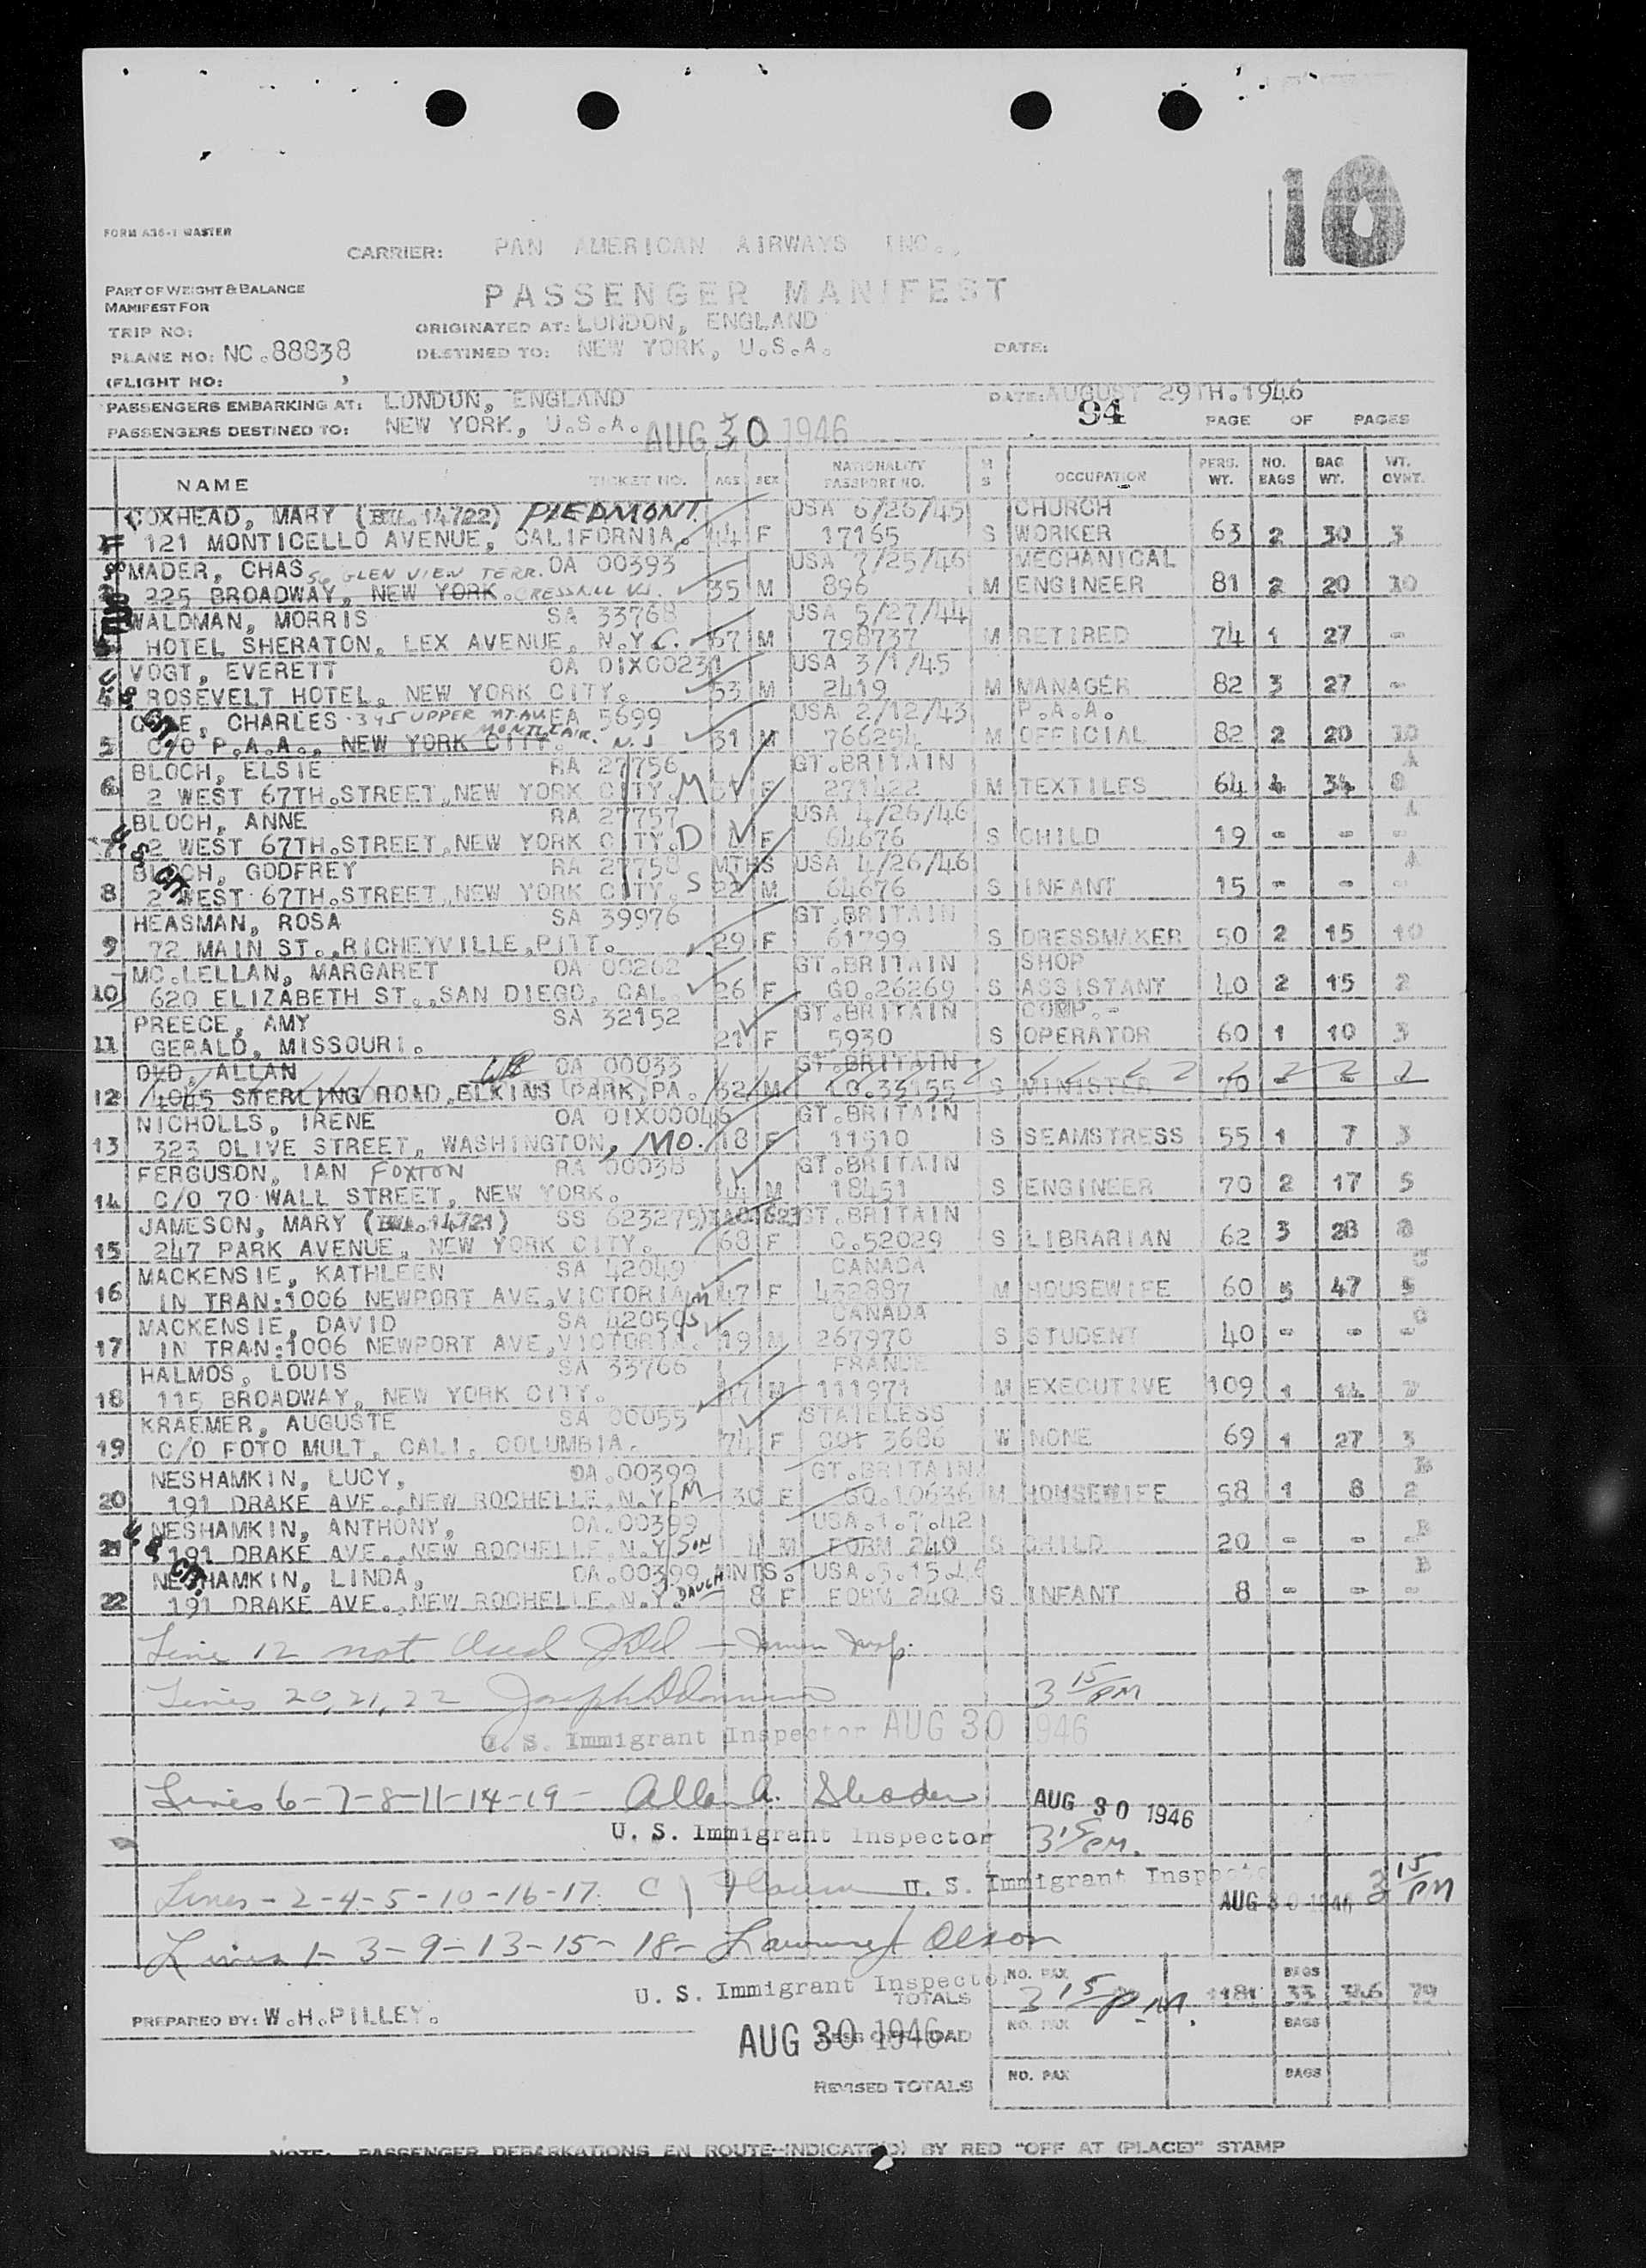 10
FORM A36-1 MASTER
CARRIER: PAN AMERICAN AIRWAYS INC.,
PART OF WEIGHT & BALANCE
MANIFEST FOR
PASSENGER MANIFEST
TRIP NO:
ORIGINATED AT: LONDON, ENGLAND
PLANE NO: NC.88838
DESTINED TO: NEW YORK, U.S.A.
DATE:
(FLIGHT NO: )
PASSENGERS EMBARKING AT: LONDON, ENGLAND
DATE: AUGUST 29TH.1946
PASSENGERS DESTINED TO: NEW YORK, U.S.A. AUG 30 1946
94
PAGE OF PAGES
NAME TICKET NO. AGE SEX NATIONALITY PASSPORT NO. M S OCCUPATION PERS. WT. NO. BAGS BAG WT. WT. OVNT.
COXHEAD, MARY ( 14722) PIEDMONT. USA 6/26/45 CHURCH
121 MONTICELLO AVENUE, CALIFORNIA. 44 F 17165 S WORKER 63 2 30 3
MADER, CHAS 56 GLEN VIEW TERR. OA 00393 USA 7/25/46 MECHANICAL
225 BROADWAY, NEW YORK. CRESSKILL NJ. 35 M 896 M ENGINEER 81 2 20 10
WALDMAN, MORRIS SA 33768 USA 5/27/44
HOTEL SHERATON, LEX AVENUE, N.Y.C. 67 M 798737 M RETIRED 74 1 27 -
VOGT, EVERETT OA OIX00231 USA 3/1/45
4 ROSEVELT HOTEL, NEW YORK CITY. 53 M 2419 M MANAGER 82 3 27 -
CHARLES 345 UPPER MT. AV. EA 5699 USA 2/12/43 P.A.A.
5 C/O P.A.A., NEW YORK CITY. MONTCLAIR. N.J 31 M 766254 M OFFICIAL 82 2 20 10
BLOCH, ELSIE RA 27756 GT.BRITAIN A
6 2 WEST 67TH.STREET,NEW YORK CITY. M F 271422 M TEXTILES 64 4 34 8
BLOCH, ANNE RA 27757 USA 4/26/46 A
7 2 WEST 67TH.STREET,NEW YORK CITY. D F 64676 S CHILD 19 - - -
U.S. CIT.
BLOCH, GODFREY RA 27758 MTHS USA 4/26/46 A
8 2 WEST 67TH.STREET,NEW YORK CITY. S 22 M 64676 S INFANT 15 - - -
HEASMAN, ROSA SA 39976 GT.BRITAIN
9 72 MAIN ST.,RICHEYVILLE,PITT. 29 F 61799 S DRESSMAKER 50 2 15 10
MC.LELLAN, MARGARET OA 00262 GT.BRITAIN SHOP
10 620 ELIZABETH ST.,SAN DIEGO, CAL. 26 F GO.26269 S ASSISTANT 40 2 15 2
PREECE, AMY SA 32152 GT.BRITAIN COMP.-
11 GERALD, MISSOURI. 21 F 5930 S OPERATOR 60 1 10 3
ALLAN OA 00033 GT.BRITAIN
12 4045 STERLING ROAD,ELKINS PARK,PA. 32 M LO.33155 S MINISTER 70 - - -
NICHOLLS, IRENE OA OIX00046 GT.BRITAIN
13 323 OLIVE STREET, WASHINGTON, MO. 18 F 11510 S SEAMSTRESS 55 1 7 3
FERGUSON, IAN FOXTON RA 00038 GT.BRITAIN
14 C/O 70 WALL STREET, NEW YORK. 44 M 18451 S ENGINEER 70 2 17 5
JAMESON, MARY ( 14721) SS 623275 GT.BRITAIN
15 247 PARK AVENUE, NEW YORK CITY. 68 F C.52029 S LIBRARIAN 62 3 28 8
MACKENSIE, KATHLEEN SA 42049 CANADA C
16 IN TRAN:1006 NEWPORT AVE,VICTORIA M 47 F 432887 M HOUSEWIFE 60 5 47 5
MACKENSIE, DAVID SA 42050 S CANADA C
17 IN TRAN:1006 NEWPORT AVE,VICTORIA. 19 M 267970 S STUDENT 40 - - -
HALMOS, LOUIS SA 33766 FRANCE
18 115 BROADWAY, NEW YORK CITY. 47 M 111971 M EXECUTIVE 109 1 14 7
KRAEMER, AUGUSTE SA 00055 STATELESS
19 C/O FOTO MULT, CALI, COLUMBIA. 74 F 3686 W NONE 69 1 27 3
NESHAMKIN, LUCY, OA.00399 GT.BRITAIN B
20 191 DRAKE AVE.,NEW ROCHELLE,N.Y. M 30 F GO.10636 M HOUSEWIFE 58 1 8 2
NESHAMKIN, ANTHONY, OA.00399 USA.1.7.42 B
21 191 DRAKE AVE.,NEW ROCHELLE,N.Y. SON 4 M FORM 240 S CHILD 20 - - -
U.S. CIT.
NESHAMKIN, LINDA, OA.00399 MNTS. USA.5.15.46 B
22 191 DRAKE AVE.,NEW ROCHELLE,N.Y. DAUGH 8 F FORM 240 S INFANT 8 - - -
Line 12 not used
Lines 20, 21, 22 3 15 PM
U. S. Immigrant Inspector AUG 30 1946
Lines 6-7-8-11-14-19- Allan A. AUG 30 1946
U. S. Immigrant Inspector 3 15 PM.
Lines-2-4-5-10-16-17. U. S. Immigrant Inspector AUG 30 1946 3 15 PM
Lines 1-3-9-13-15-18- Olson
U. S. Immigrant Inspector
TOTALS NO. PAX 3 15 P.M. 1181 BAGS 33 346 79
PREPARED BY: W.H.PILLEY.
AUG 30 1946
NO. PAX BAGS
REVISED TOTALS NO. PAX BAGS
NOTE: PASSENGER DEBARKATIONS EN ROUTE-INDICATE(D) BY RED "OFF AT (PLACE)" STAMP